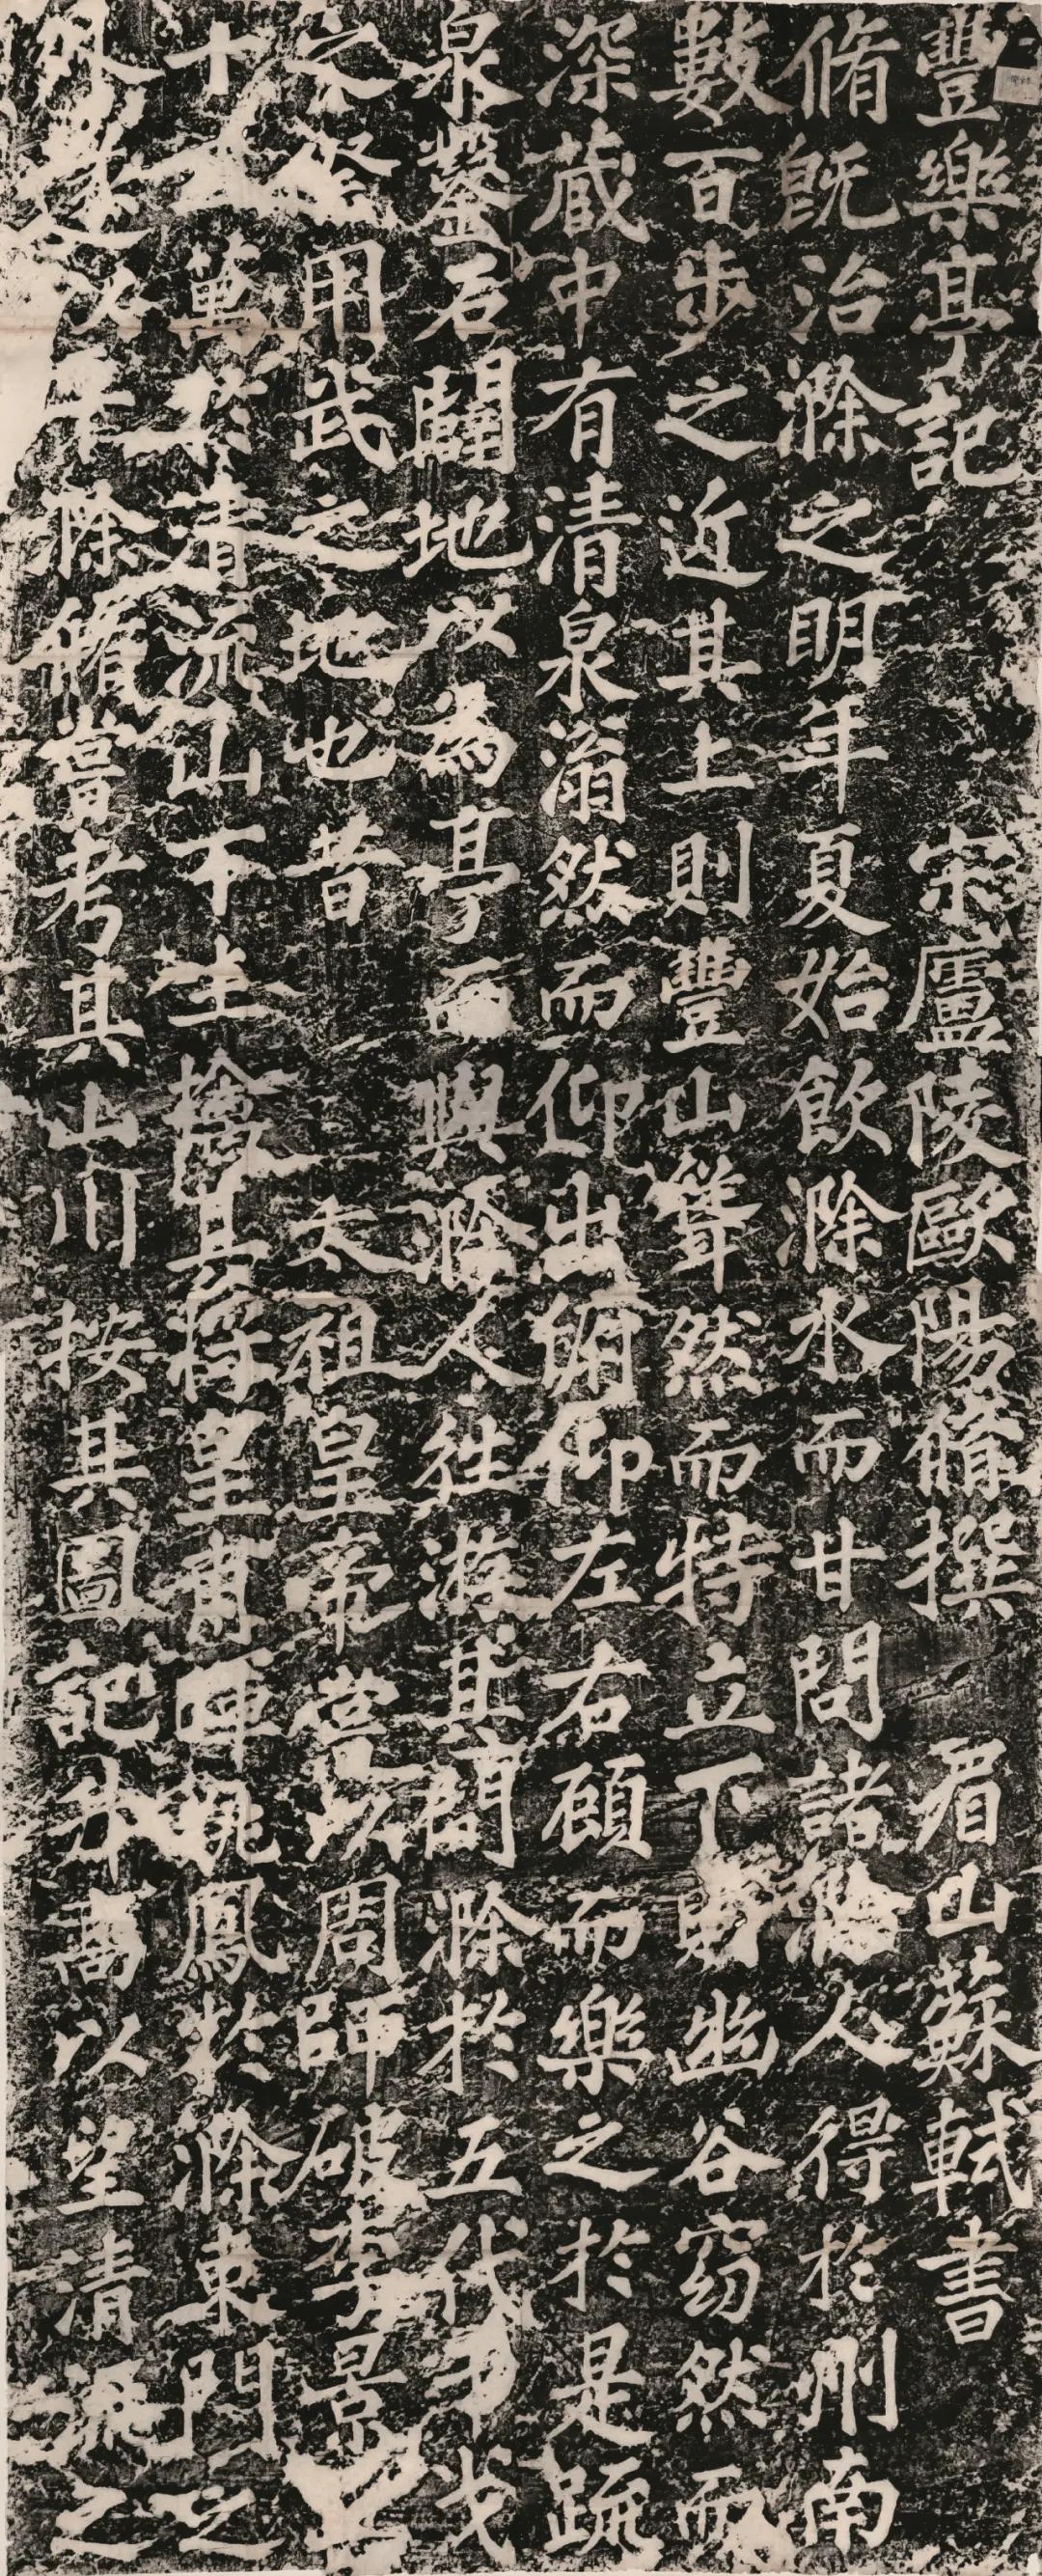 豐樂亭記 宋廬陵歐陽脩撰 眉山蘇軾書
脩旣治滁之明年夏始飲滁水而甘問諸滁人得於州南
數百步之近其上則豐山聳然而特立下則幽谷窈然而
深藏中有清泉滃然而仰出俯仰左右顧而樂之於是疏
泉鑿石闢地以為亭而與滁人往游其間滁於五代干戈
之際用武之地也昔 太祖皇帝嘗以周師破李景兵
十五萬於清流山下生擒其將皇甫暉姚鳳於滁東門之
外遂以平滁脩嘗考其山川按其圖記升高以望清流之